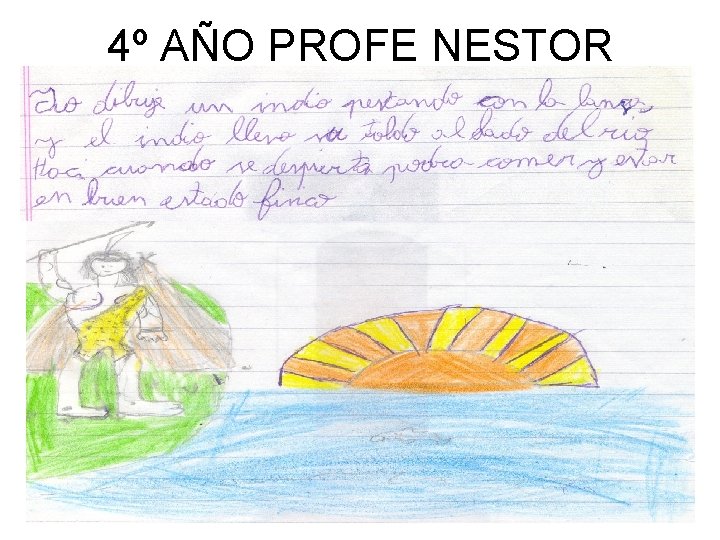 4º AÑO PROFE NESTOR
Yo dibuje un indio pescando con la lanza
y el indio lleva su toldo al lado del rio
Haci cuando se despierta podra comer y estar
en buen estado finco